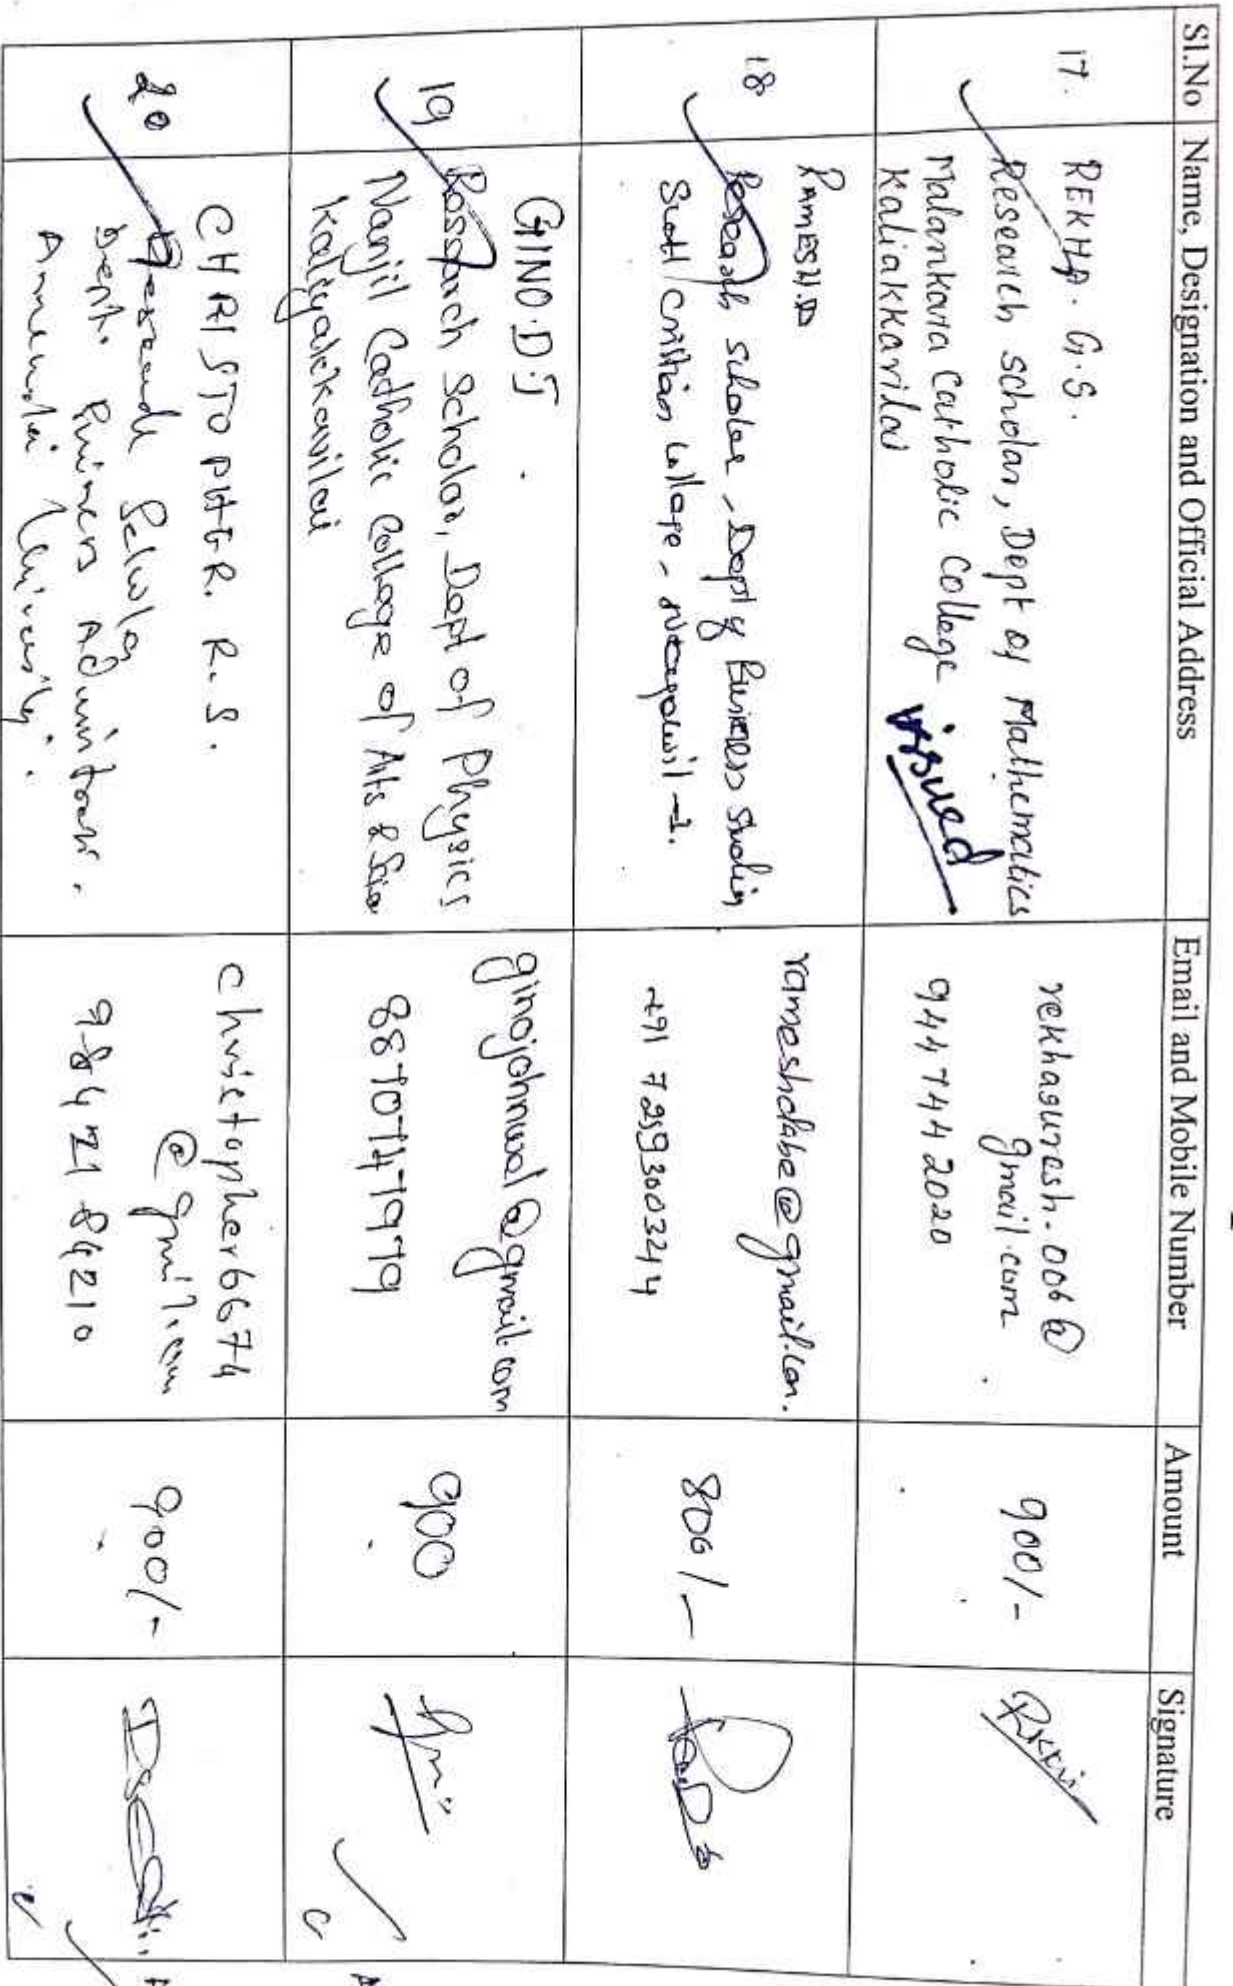 Sl.No Name, Designation and Official Address Email and Mobile Number Amount Signature
17.
REKHA. G.S.
Research scholar, Dept of Mathematics
Malankara Catholic College
Kaliakkavilai
issued
rekhasuresh.006@
gmail.com
944 744 2020
900/-
18
RAMESH.D
Research scholar - Dept of Business Studies
Scott Cristian College -
rameshdabe@gmail.com.
+91 7259300324 4
800/-
19
GINO.D.J
Research Scholar, Dept of Physics
Nanjil Catholic College of Arts & Scie
Kaliyakkavilai
ginojohnwal@gmail.com
8870747979
900
20
CHRISTOPHER. R.S.
Research Scholar
Dept.
University.
christopher6674
@gmil.com
98421 84210
900/-